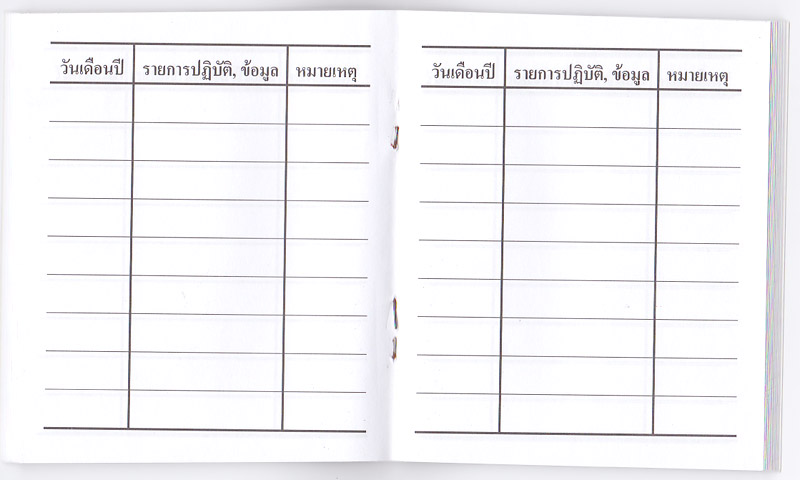 วันเดือนปี รายการปฏิบัติ, ข้อมูล หมายเหตุ
วันเดือนปี รายการปฏิบัติ, ข้อมูล หมายเหตุ